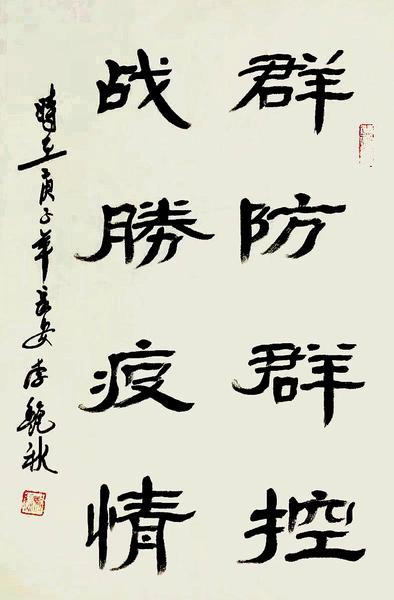 群防群控
战勝疫情
時在庚子年長安李艳秋